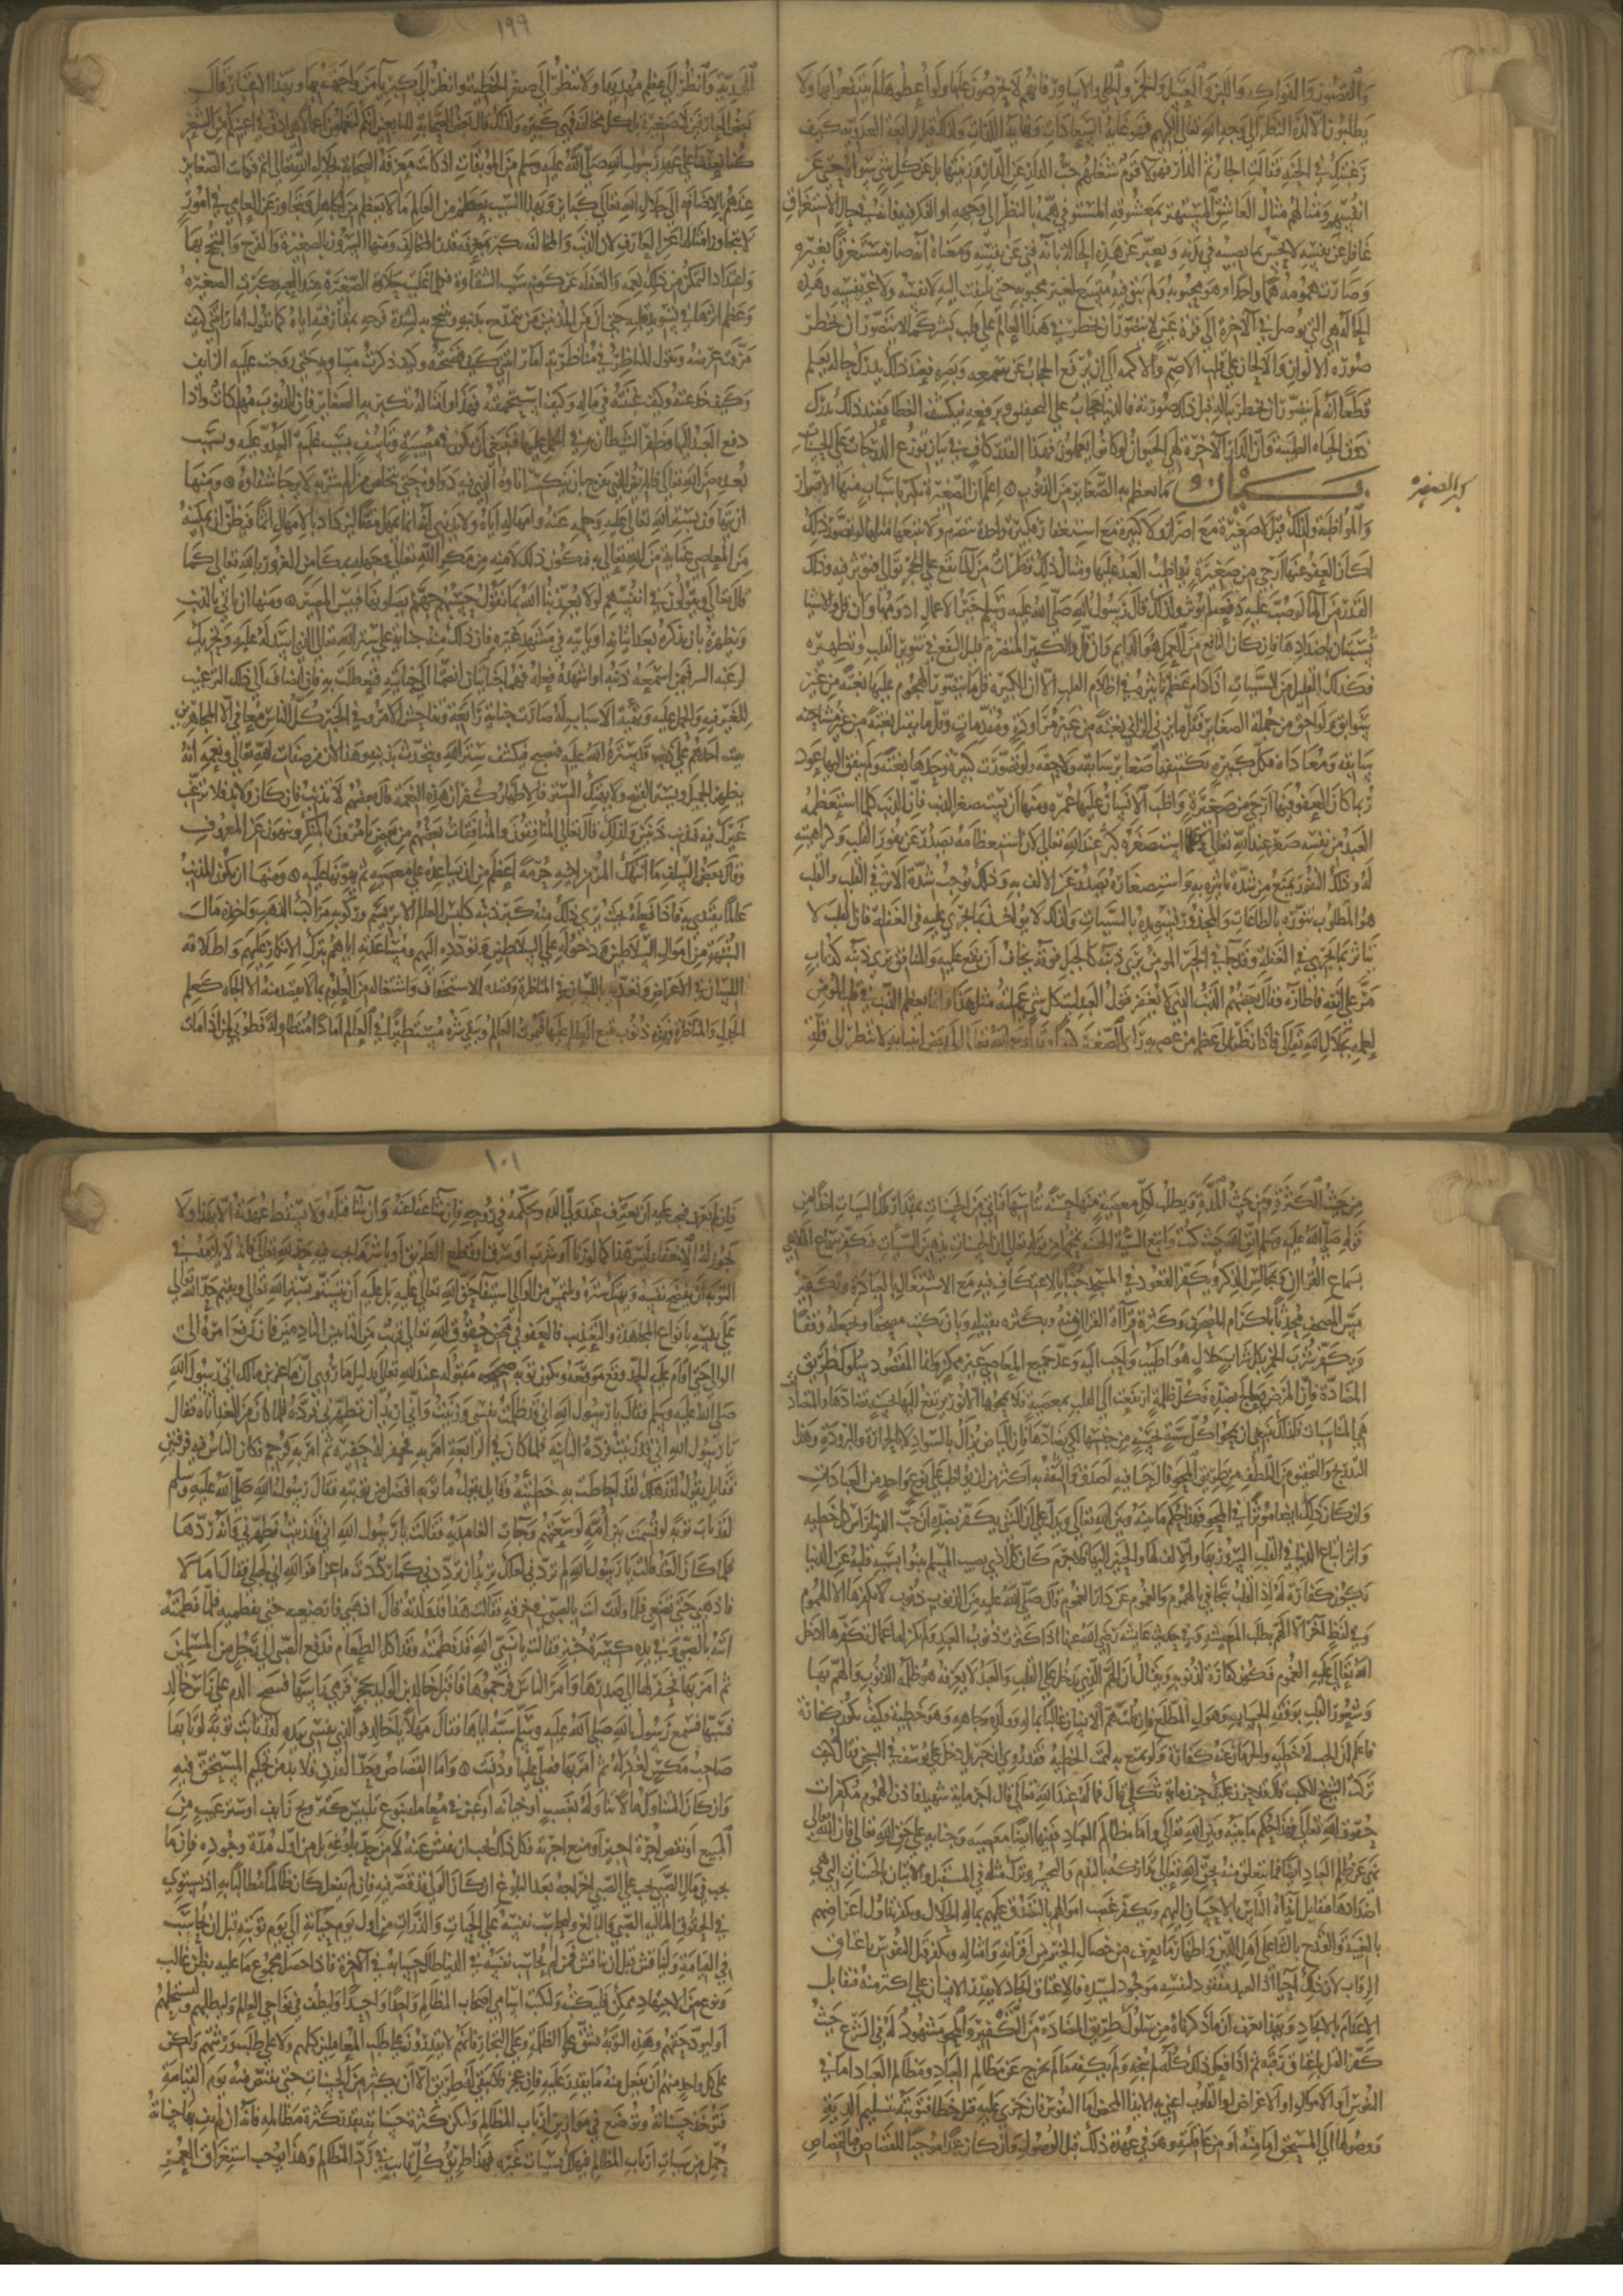 والقصور والفواكه واللبن والعسل والخمر والحلي والاساور فانهم لا يحرصون عليها ولو اعطوها لم يقنعوا بها ولا
يطلبون الا لذة النظر الى وجه الله تعالى الكريم فهو غاية السعادات ونهاية اللذات ولذلك قيل لرابعة العدوية كيف
رغبتك في الجنة فقالت الجار ثم الدار فهولا قوم شغلهم حب رب الدار عن الدار وزينتها بل عن كل شي سواه حتى عن
انفسهم ومثالهم مثال العاشق المستهتر بمعشوقه المستوفي همه بالنظر الى وجهه او الفكر فيه فانه في حال الاستغراق
غافل عن نفسه لا يحس بما يصيبه في بدنه ويعبر عن هذه الحالة بانه فني عن نفسه ومعناه انه صار مستغرقا بغيره
وصارت همومه هما واحدا وهو محبوبه ولم يبق فيه متسع لغير محبوبه حتى يلتفت اليه لا نفسه ولا غير نفسه وهذه
الحالة هي التي توصل في الآخرة الى قرة عين لا يتصور ان تخطر في هذا العالم على قلب بشر كما لا يتصور ان تخطر
صورة الالوان والالحان على قلب الاصم والاكمه الى ان يرفع الحجاب عن سمعه وبصره فعند ذلك يدرك حاله ويعلم
قطعا انه لم يتصور ان تخطر بباله قبل ذلك صورته فالدنيا حجاب على التحقيق وبرفعه ينكشف الغطا فعند ذلك يدرك
ذوق الحياه الطيبه وان الدار الآخرة لهي الحيوان لو كانوا يعلمون فهذا القدر كاف في بيان توزع الدرجات على الحسنات
بيان ما تعظم به الصغاير من الذنوب اعلم ان الصغيرة تكبر باسباب منها الاصرار
كبر الصغيره
والمواظبة ولذلك قيل لا صغيرة مع اصرار ولا كبيرة مع استغفار فكبيرة واحدة تنصرم ولا يتبعها مثلها لو تصور ذلك
لكان العفو عنها ارجى من صغيرة يواظب العبد عليها ومثال ذلك قطرات من الما تقع على الحجر على توالي فتوثر فيه وذلك
القدر من الما لو صب عليه دفعة لم يوثر ولذلك قال رسول الله صلى الله عليه وسلم خير الاعمال ادومها وان قل والاشيا
تستبان باضدادها فان كان النافع من العمل هو الدايم وان قل فالكثير المنصرم قليل النفع في تنوير القلب وتطهيره
فكذلك القليل من السيئات اذا دام عظم تاثيره في اظلام القلب الا ان الكبيرة قل ما يتصور الهجوم عليها بغتة من غير
سوابق ولواحق من جملة الصغاير فقل ما يزني الزاني بغتة من غير مراودة ومقدمات وقل ما يقتل بغتة من غير مشاحنة
سابقة ومعاداة فكل كبيرة تكتنفها صغاير سابقة ولاحقة ولو تصورت كبيرة وحدها بغتة ولم يتفق اليها عود
ربما كان العفو فيها ارجى من صغيرة واظب الانسان عليها عمره ومنها ان يستصغر الذنب فان الذنب كلما استعظمه
العبد من نفسه صغر عند الله تعالى وكلما استصغره كبر عند الله تعالى لان استعظامه يصدر عن نفور القلب وكراهيته
له وذلك النفور يمنع من شدة تاثيره به واستصغاره يصدر عن الالف به وذلك يوجب شدة الاثر في القلب والقلب
هو المطلوب تنويره بالطاعات والمحذور تسويده بالسيئات ولذلك لا يواخذ بما يجري عليه في الغفلة فان القلب لا
يتاثر بما يجري في الغفلة وقد جا في الخبر المومن يرى ذنبه كالجبل فوقه يخاف ان يقع عليه والمنافق يرى ذنبه كذباب
مر على انفه فاطاره وقال بعضهم الذنب الذي لا يغفر قول العبد ليت كل شي عملته مثل هذا وانما يعظم الذنب في قلب المومن
لعلمه بجلال الله تعالى فاذا نظر الى عظم من عصى به راى الصغيرة كبيرة وقد اوحى الله تعالى الى بعض انبيايه لا تنظر الى قلة
١٩٩
الهدية وانظر الى عظم مهديها ولا تنظر الى صغر الخطيئة وانظر الى كبريا من واجهته بها وبهذا الاعتبار قال
بعض العارفين لا صغيرة بل كل مخالفة فهي كبيرة ولذلك قال بعض الصحابة للتابعين انكم لتعملون اعمالا هي ادق في اعينكم من الشعر
كنا نعدها على عهد رسول الله صلى الله عليه وسلم من الموبقات اذ كانت معرفة الصحابة بجلال الله تعالى اتم فكانت الصغاير
عندهم بالاضافة الى جلال الله تعالى كباير وبهذا السبب يعظم من العالم ما لا يعظم من الجاهل ويتجاوز عن العامي في امور
لا يتجاوز امثالها عن العارف لان الذنب والمخالفة يكبر بقدر معرفة المخالف ومنها السرور بالصغيرة والفرح والتبجح بها
واعتداد التمكن من ذلك نعمة والغفلة عن كونه سبب الشقاوة فكلما غلبت حلاوة الصغيرة عند العبد كبرت الصغيرة
وعظم اثرها في تسويد قلبه حتى ان من المذنبين من يتمدح بذنبه ويتبجح به لشدة فرحه بمقارفته اياه كما يقول اما رايتني كيف
مزقت عرضه ويقول المناظر في مناظرته اما رايتني كيف فضحته وكيف ذكرت مساويه حتى روجت عليه الزايف
وكيف خدعته وكيف غبنته في ماله وكيف استحمقته فهذا وامثاله تكبر به الصغاير فان الذنوب مهلكات واذا
دفع العبد اليها وظفر الشيطان به في الحمل عليها فينبغي ان يكون في مصيبة وتاسف بسبب غلبة العدو عليه وبسبب
بعده من الله تعالى فالمريض الذي يفرح بان ينكسر اناوه الذي فيه دواوه حتى يتخلص من الم شربه لا يرجى شفاوه ومنها
ان يتهاون بستر الله تعالى عليه وحلمه عنه وامهاله اياه ولا يدري انه انما يمهل مقتا ليزداد بالامهال اثما فيظن ان تمكينه
من المعاصي عناية من الله تعالى به فيكون ذلك لامنه من مكر الله تعالى وجهله بمكامن الغرور بالله تعالى كما
قال تعالى ويقولون في انفسهم لولا يعذبنا الله بما نقول حسبهم جهنم يصلونها فبيس المصير ومنها ان ياتي بالذنب
ويظهره بان يذكره بعد اتيانه او ياتيه في مشهد غيره فان ذلك منه جناية على ستر الله تعالى الذي اسدله عليه وتحريك
لرغبة الشر فيمن اسمعه ذنبه او اشهده فعله فهما جنايتان انضمتا الى جنايته فتغلظت به فان انضاف الى ذلك الترغيب
للغير فيه والحمل عليه وتهيئة الاسباب له صارت جناية رابعة وتفاحش الامر وفي الخبر كل الناس معافى الا المجاهرين
يبيت احدهم على ذنب قد ستره الله عليه فيصبح فيكشف ستر الله ويتحدث بذنبه وهذا لان من صفات الله تعالى ونعمه انه
يظهر الجميل ويستر القبيح ولا يهتك الستر فالاظهار كفران هذه النعمة قال بعضهم لا تذنب فان كان ولا بد فلا ترغب
غيرك فيه فتذنب ذنبين ولذلك قال تعالى المنافقون والمنافقات بعضهم من بعض يامرون بالمنكر وينهون عن المعروف
وقال بعض السلف ما انتهك المرء من اخيه حرمة اعظم من ان يساعده على معصيته ثم يهونها عليه ومنها ان يكون المذنب
عالما يقتدى به فاذا فعله بحيث يرى ذلك منه كبر ذنبه كلبس العالم الابريسم وركوبه مراكب الذهب واخذه مال
الشبهة من اموال السلاطين ودخوله على السلاطين وتردده اليهم ومساعدته اياهم بترك الانكار عليهم واطلاقه
اللسان في الاعراض وتعديه باللسان في المناظرة وقصده الاستخفاف واشتغاله من العلوم بما لا يقصد منه الا الجاه كعلم
الجدل والمناظرة فهذه ذنوب يتبع العالم عليها فيموت العالم ويبقى شره مستطيرا في العالم امادا متطاولة فطوبى لمن اذا مات
من حيث الكثرة ومن حيث المدة ويطلب لكل معصية منها حسنة تناسبها فياتي من الحسنات بمقدار تلك السيئات اخذا من
قوله صلى الله عليه وسلم اتق الله حيث كنت واتبع السيئة الحسنة تمحها من قوله تعالى ان الحسنات يذهبن السيئات فيكفر سماع الملاهي
بسماع القران وبمجالس الذكر ويكفر القعود في المسجد جنبا بالاعتكاف فيه مع الاشتغال بالعبادة ويكفر
مس المصحف محدثا باكرام المصحف وكثرة قراة القران منه وبكثرة تقبيله وبان يكتب مصحفا ويجعله وقفا
ويكفر شرب الخمر بكل شراب حلال هو اطيب واحب اليه وعد جميع المعاصي غير ممكن وانما المقصود سلوك طريق
المضادة فان المرض يعالج بضده فكل ظلمة ارتفعت الى القلب بمعصية فلا يمحوها الا نور يرتفع اليها بحسنة تضادها والمتضادات
هي المتناسبات فلذلك ينبغي ان يمحوا كل سيئة بحسنة من جنسها لكي تضادها فان البياض يزال بالسواد لا بالحرارة والبرودة وهذا
التدريج والتحقيق من التلطف في طريق المحو فالرجا فيه اصدق والثقة به اكثر من ان يواظب على نوع واحد من العبادات
وان كان ذلك ايضا موثرا في المحو فهذا حكم ما بينه وبين الله تعالى ويدل على ان الشي يكفر بضده ان حب الدنيا راس كل خطيه
واثر اتباع الدنيا في القلب السرور بها والالف لها والحنين اليها فلا جرم كان كل اذى يصيب المسلم ينبوا بسببه قلبه عن الدنيا
يكون كفارة له اذ القلب يتجافى بالهموم والغموم عن دار الهموم قال صلى الله عليه من الذنوب ذنوب لا يكفرها الا الهموم
وفي لفظ آخر الا الهم بطلب المعيشة وفي حديث عايشة رضي الله عنها اذا كثرت ذنوب العبد ولم يكن له اعمال تكفرها ادخل
الله تعالى عليه الغموم فتكون كفارة لذنوبه ويقال ان الهم الذي يدخل على القلب والعبد لا يعرفه هو ظلمة الذنوب والهم بها
وشعور القلب بوقفة الحساب وهول المطلع فان قلت هم الانسان غالبا بماله وولده وجاهه وهو خطيئة فكيف يكون كفارة
فاعلم ان الحب له خطيئة والحرمان عنه كفارة ولو تمتع به لتمت الخطيئة فقد روي ان جبريل دخل على يوسف في السجن فقال له كيف
تركت الشيخ الكييب قال قد حزن عليك حزن ماية ثكلى قال فما له عند الله تعالى قال اجر ماية شهيد فاذن الهموم مكفرات
حقوق الله تعالى فهذا حكم ما بينه وبين الله تعالى واما مظالم العباد ففيها ايضا معصية وجناية على حق الله تعالى فان الله تعالى
نهى عن ظلم العباد ايضا فما يتعلق منه بحق الله تعالى تداركه بالندم والتحسر وترك مثله في المستقبل والاتيان بالحسنات التي هي
اضدادها فيقابل ايذاه الناس بالاحسان اليهم ويكفر غصب اموالهم بالتصدق عليهم بماله الحلال ويكفر تناول اعراضهم
بالغيبة والقدح بالثنا على اهل الدين واظهار ما يعرف من خصال الخير من اقرانه وامثاله ويكفر قتل النفوس باعتاق
الرقاب لان ذلك احيا اذ العبد مفقود لنفسه موجود لسيده فالاعتاق ايجاد لا يقدر الانسان على اكثر منه فيقابل
الاعدام بالايجاد وبهذا تعرف ان ما ذكرناه من سلوك طريق المضادة من التكفير والمحو مشهود له في الشرع حيث
كفر القتل باعتاق رقبة ثم اذا فعل ذلك كله لم ينجه ولم يكفه ما لم يخرج عن مظالم العباد ومظالم العباد اما في
النفوس او الاموال او الاعراض او القلوب اعني به الايذا المحض اما النفوس فان جرى عليه قتل خطا فتوبته بتسليم الدية
ووصولها الى المستحق اما منه او من عاقلته وهو في عهدة ذلك قبل الوصول وان كان عمدا موجبا للقصاص فبالقصاص
١٠١
فان لم يعرف فيجب عليه ان يتعرف عند ولي الدم ويحكمه في روحه فان شا عفا عنه وان شا قتله ولا تسقط عهدته الا بهذا ولا
يجوز له الاخفا وليس هذا كما لو زنا او شرب او سرق او قطع الطريق او باشر ما يجب فيه حد الله تعالى فانه لا يلزمه في
التوبة ان يفضح نفسه ويهتك ستره ويلتمس من الوالي استيفا حق الله تعالى عليه بل عليه ان يتستر بستر الله تعالى ويقيم حد الله تعالى
على نفسه بانواع المجاهدة والتعذيب فالعفو في محض حقوق الله تعالى قريب من التايبين النادمين فان رفع امره الى
الوالي حتى اقام عليه الحد وقع موقعه وتكون توبته صحيحه مقبولة عند الله تعالى بدليل ما روي ان ماعز بن مالك اتى رسول الله
صلى الله عليه وسلم فقال يا رسول الله اني قد ظلمت نفسي وزنيت واني اريد ان تطهرني فرده فلما كان من الغد اتاه فقال
يا رسول الله اني قد زنيت فرده الثانية فلما كان في الرابعة امر به فحفر له حفيرة ثم امر به فرجم فكان الناس فيه فرقتين
فقايل يقول لقد هلك لقد احاطت به خطيئته وقايل يقول ما توبة افضل من توبته فقال رسول الله صلى الله عليه وسلم
لقد تاب توبة لو قسمت بين امة لوسعتهم وجات الغامدية فقالت يا رسول الله اني قد زنيت فطهرني فانه ردها
فلما كان الغد قالت يا رسول الله لم تردني لعلك تريد ان ترددني كما رددت ماعزا فوالله اني لحبلى فقال اما الآن لا
فاذهبي حتى تضعي فلما ولدت اتت بالصبي في خرقة فقالت هذا قد ولدته قال اذهبي فارضعيه حتى تفطميه فلما فطمته
اتته بالصبي وفي يده كسرة خبز فقالت يا نبي الله قد فطمته وقد اكل الطعام فدفع الصبي الى رجل من المسلمين
ثم امر بها فحفر لها الى صدرها وامر الناس فرجموها فاقبل خالد بن الوليد بحجر فرمى راسها فنضح الدم على خالد
فسبها فسمع رسول الله صلى الله عليه وسلم سبه اياها فقال مهلا يا خالد فوالذي نفسي بيده لقد تابت توبة لو تابها
صاحب مكس لغفر له ثم امر بها فصلي عليها ودفنت واما القصاص وحد القذف فلا بد من تحكيم المستحق فيه
وان كان المتناول مالا تناوله بغصب او خيانه او غبن في معامله بنوع تلبيس كترويج زايف او ستر عيب من
المبيع او نقص اجرة اجير او منع اجرته فكل ذلك يجب ان يفتش عنه لا من حد بلوغه بل من اول مدة وجوده فان ما
يجب في مال الصبي يجب على الصبي اخراجه بعد البلوغ ان كان الولي قد قصر فيه فان لم يفعل كان ظالما مطالبا به اذ يستوي
في الحقوق المالية الصبي والبالغ وليحاسب نفسه على الحبات والذرات من اول يوم حياته الى يوم توبته قبل ان يحاسب
في القيامة وليناقش قبل ان يناقش فمن لم يحاسب نفسه في الدنيا طال حسابه في الآخرة فاذا حصل مجموع ما عليه بظن غالب
ونوع من الاجتهاد ممكن فليكتبه وليكتب اسامي اصحاب المظالم واحدا واحدا وليطف في نواحي العالم وليطلبهم وليستحلهم
او ليود حقهم وهذه التوبة تشق على الظلمة وعلى التجار فانهم لا يقدرون على طلب المعاملين كلهم ولا على طلب ورثتهم ولكن
على كل واحد منهم ان يفعل منه ما يقدر عليه فان عجز فلا يبقى له طريق الا ان يكثر من الحسنات حتى يقتص منه يوم القيامة
فتوخذ حسناته وتوضع في موازين ارباب المظالم ولتكن كثرة حسناته بقدر كثرة مظالمه فانه ان لم تف بها حسناته
حمل من سيئات ارباب المظالم فيهلك بسيئات غيره فهذا طريق كل تايب في رد المظالم وهذا يوجب استغراق العمر